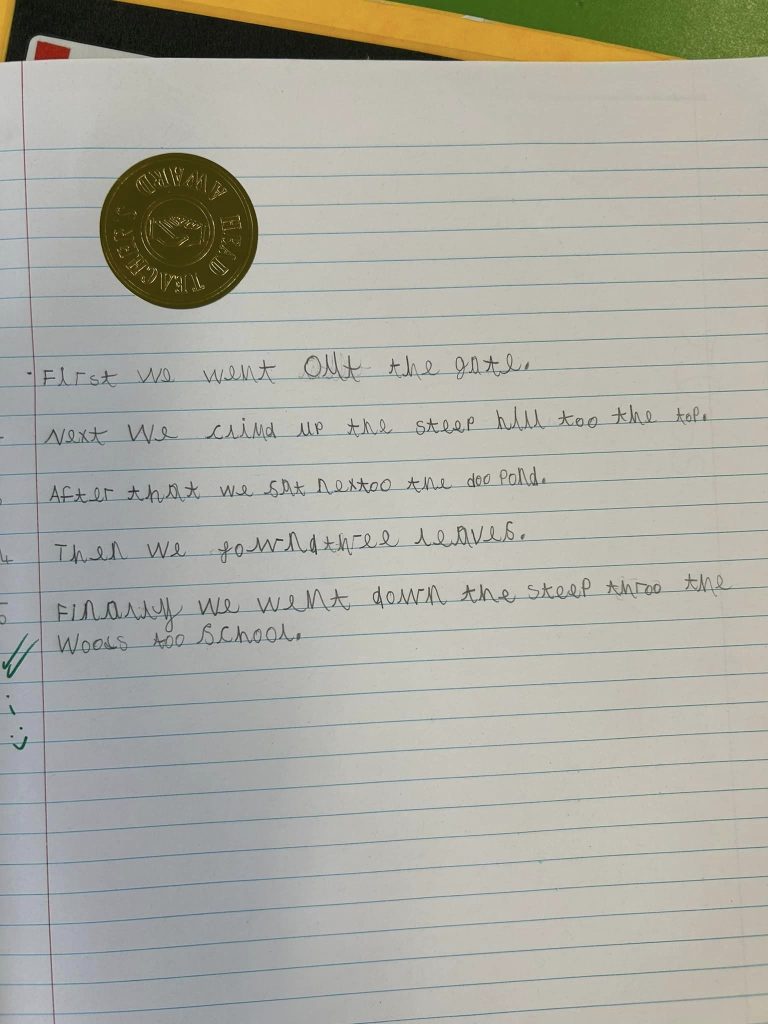 HEAD TEACHER'S AWARD
First we went out the gate.
Next we clind up the steep hill too the top.
After that we sat nextoo the doo pond.
4 Then we fownd three leaves.
5 Finally we went down the steep throo the
woods too school.